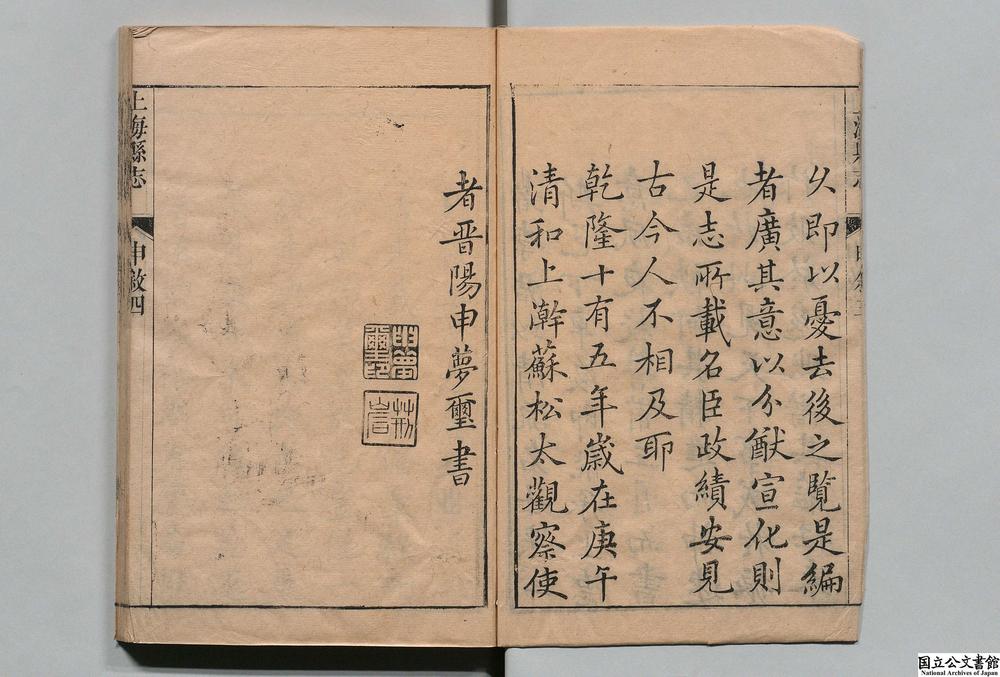 久即以憂去後之覽是編
者廣其意以分猷宣化則
是志所載名臣政績安見
古今人不相及耶
乾隆十有五年歲在庚午
清和上澣蘇松太觀察使
者晋陽申夢璽書
申夢
璽印
上海縣志
申敘四
国立公文書館
National Archives of Japan